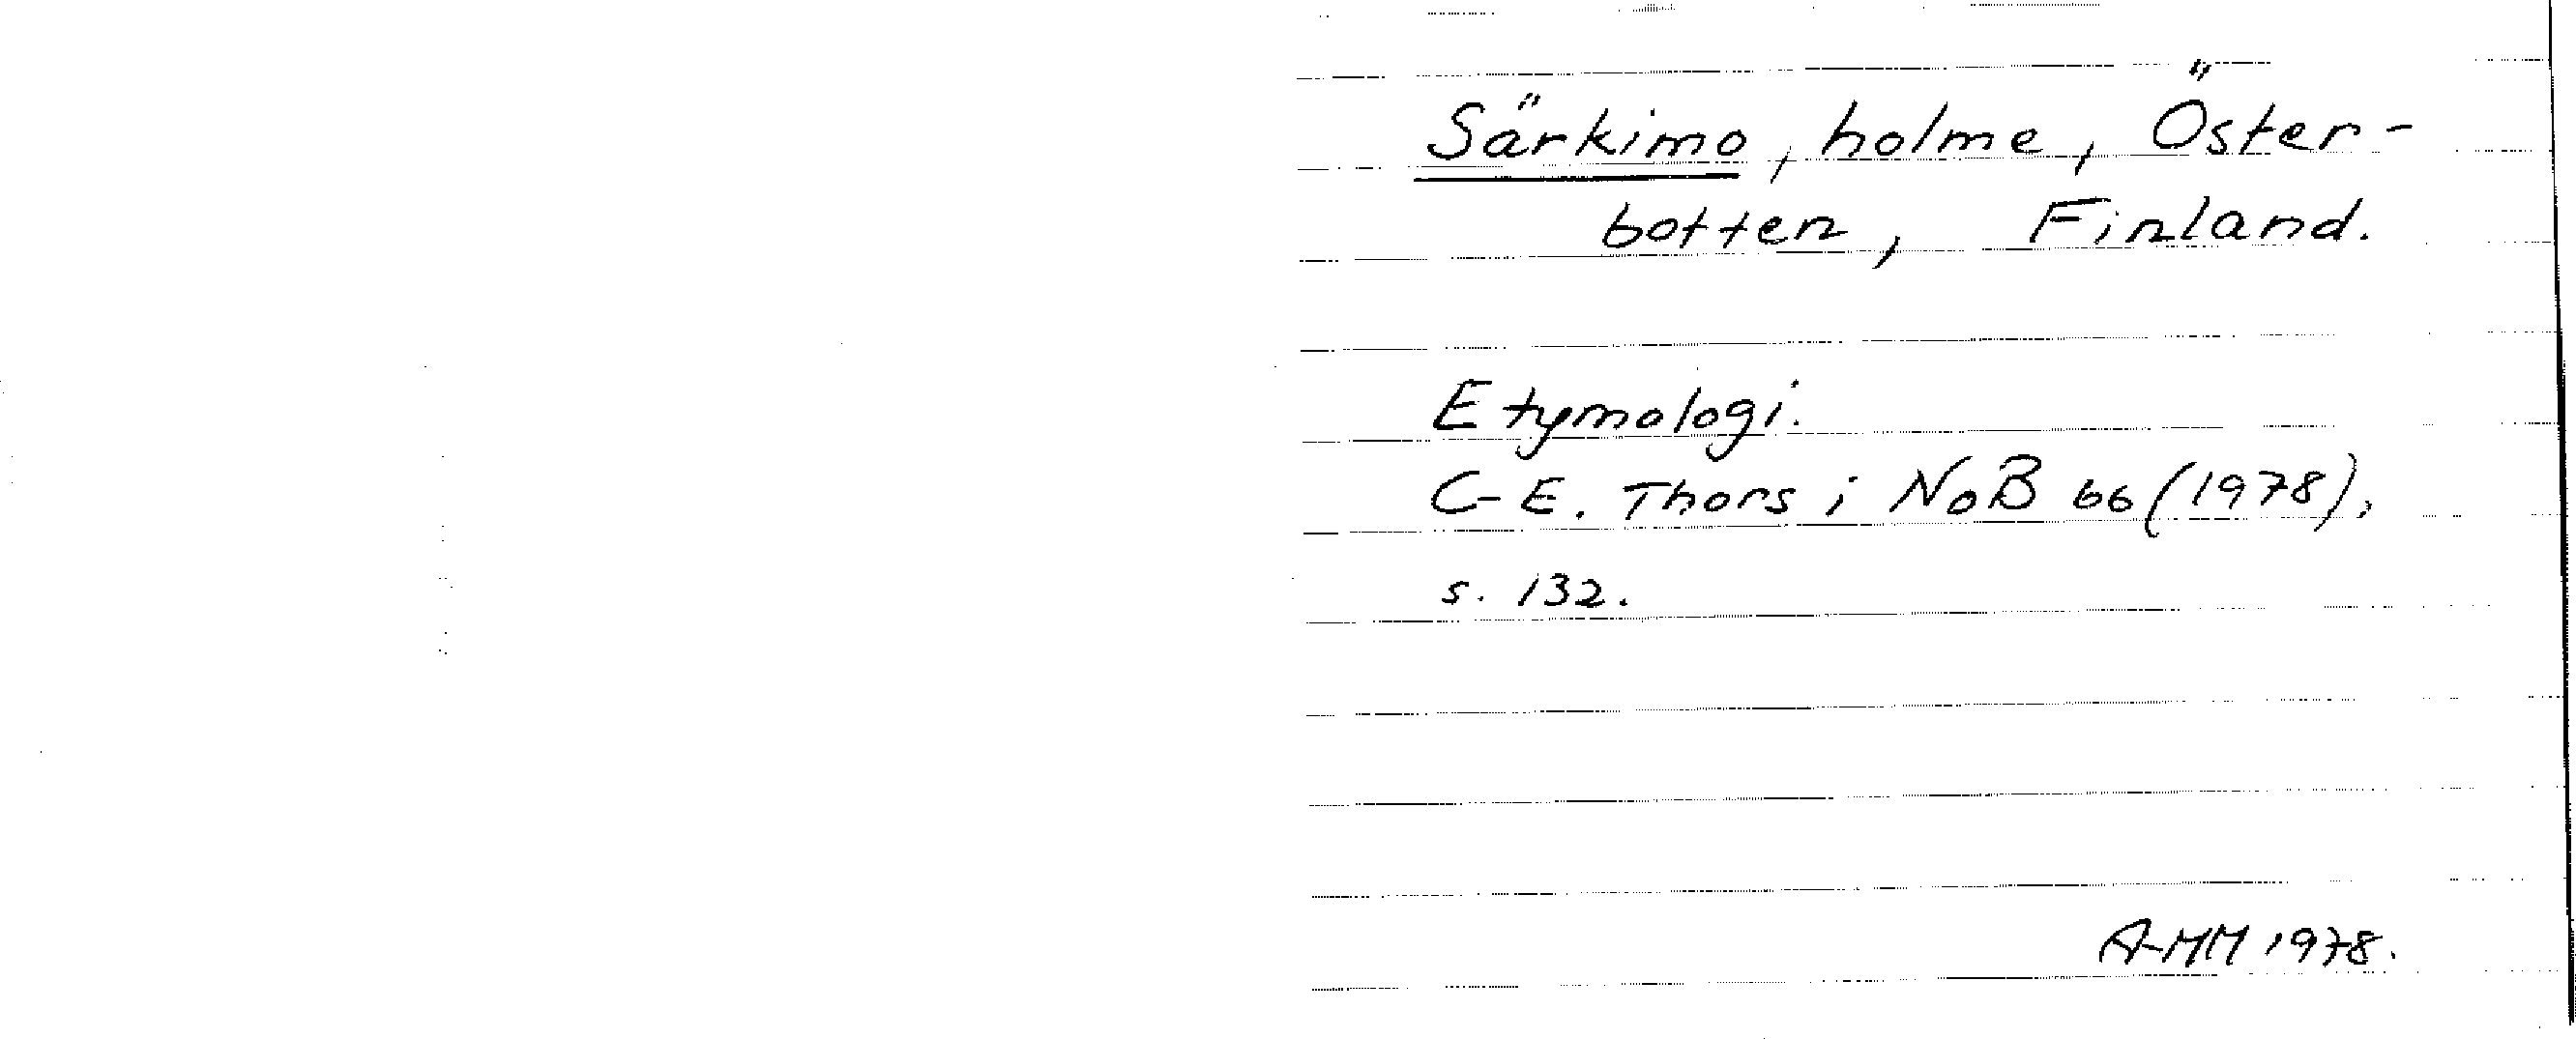 Särkimo, holme, Öster-
botten, Finland.
Etymologi.
C-E. Thors i NoB 66 (1978),
s. 132.
A-MM 1978.